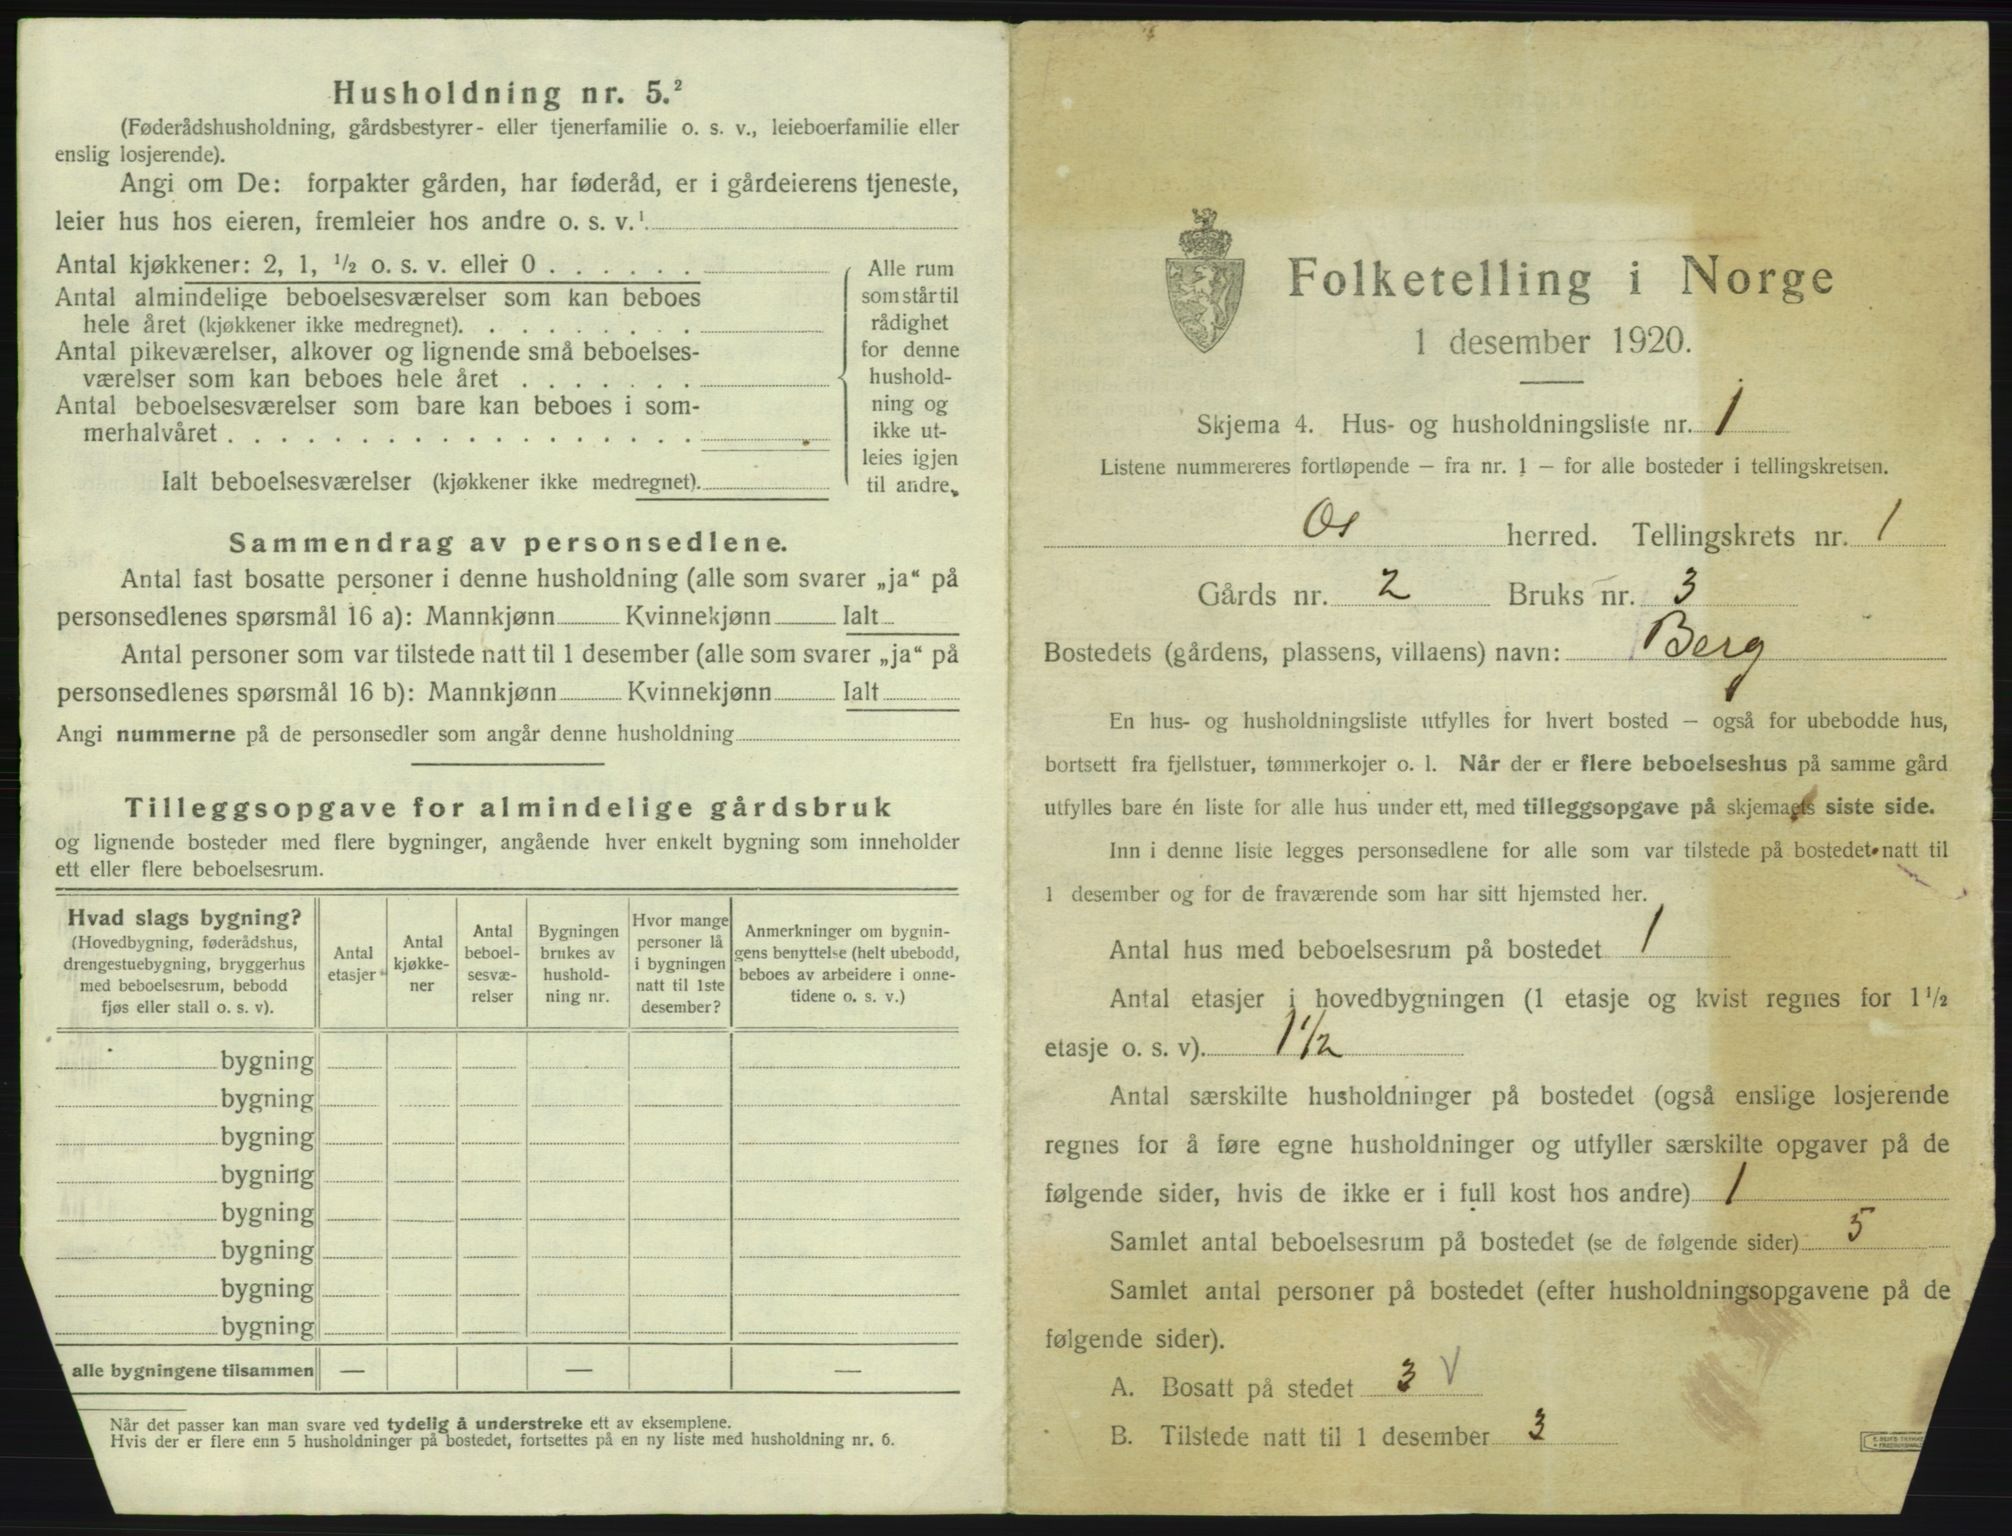 Husholdning nr. 5.²
(Føderådshusholdning, gårdsbestyrer- eller tjenerfamilie o. s. v., leieboerfamilie eller
enslig losjerende).
Angi om De: forpakter gården, har føderåd, er i gårdeierens tjeneste,
leier hus hos eieren, fremleier hos andre o. s. v.¹
Antal kjøkkener: 2, 1, ½ o. s. v. eller 0 . . . . . .
Antal almindelige beboelsesværelser som kan beboes
hele året (kjøkkener ikke medregnet). . . . . . . . .
Antal pikeværelser, alkover og lignende små beboelses-
værelser som kan beboes hele året . . . . . . .
Antal beboelsesværelser som bare kan beboes i som-
merhalvåret . . . . . . . . . . . . . . . . . .
Ialt beboelsesværelser (kjøkkener ikke medregnet).
Alle rum
som står til
rådighet
for denne
hushold-
ning og
ikke ut-
leies igjen
til andre.
Sammendrag av personsedlene.
Antal fast bosatte personer i denne husholdning (alle som svarer „ja“ på
personsedlenes spørsmål 16 a): Mannkjønn Kvinnekjønn Ialt
Antal personer som var tilstede natt til 1 desember (alle som svarer „ja“ på
personsedlenes spørsmål 16 b): Mannkjønn Kvinnekjønn Ialt
Angi nummerne på de personsedler som angår denne husholdning
Tilleggsopgave for almindelige gårdsbruk
og lignende bosteder med flere bygninger, angående hver enkelt bygning som inneholder
ett eller flere beboelsesrum.
Hvad slags bygning?
(Hovedbygning, føderådshus,
drengestuebygning, bryggerhus
med beboelsesrum, bebodd
fjøs eller stall o. s. v).
Antal
etasjer
Antal
kjøkke-
ner
Antal
beboel-
sesvæ-
relser
Bygningen
brukes av
hushold-
ning nr.
Hvor mange
personer lå
i bygningen
natt til 1ste
desember?
Anmerkninger om bygnin-
gens benyttelse (helt ubebodd,
beboes av arbeidere i onne-
tidene o. s. v.)
bygning
bygning
bygning
bygning
bygning
bygning
bygning
bygning
alle bygningene tilsammen — — —
Når det passer kan man svare ved tydelig å understreke ett av eksemplene.
Hvis der er flere enn 5 husholdninger på bostedet, fortsettes på en ny liste med husholdning nr. 6.
Folketelling i Norge
1 desember 1920.
Skjema 4. Hus- og husholdningsliste nr. 1
Listene nummereres fortløpende — fra nr. 1 — for alle bosteder i tellingskretsen.
Os herred. Tellingskrets nr. 1
Gårds nr. 2 Bruks nr. 3
Bostedets (gårdens, plassens, villaens) navn: Berg
En hus- og husholdningsliste utfylles for hvert bosted — også for ubebodde hus,
bortsett fra fjellstuer, tømmerkojer o. l. Når der er flere beboelseshus på samme gård
utfylles bare én liste for alle hus under ett, med tilleggsopgave på skjemaets siste side.
Inn i denne liste legges personsedlene for alle som var tilstede på bostedet natt til
1 desember og for de fraværende som har sitt hjemsted her.
Antal hus med beboelsesrum på bostedet 1
Antal etasjer i hovedbygningen (1 etasje og kvist regnes for 1½
etasje o. s. v). 1½
Antal særskilte husholdninger på bostedet (også enslige losjerende
regnes for å føre egne husholdninger og utfyller særskilte opgaver på de
følgende sider, hvis de ikke er i full kost hos andre) 1
Samlet antal beboelsesrum på bostedet (se de følgende sider) 5
Samlet antal personer på bostedet (efter husholdningsopgavene på de
følgende sider).
A. Bosatt på stedet 3 V
B. Tilstede natt til 1 desember 3